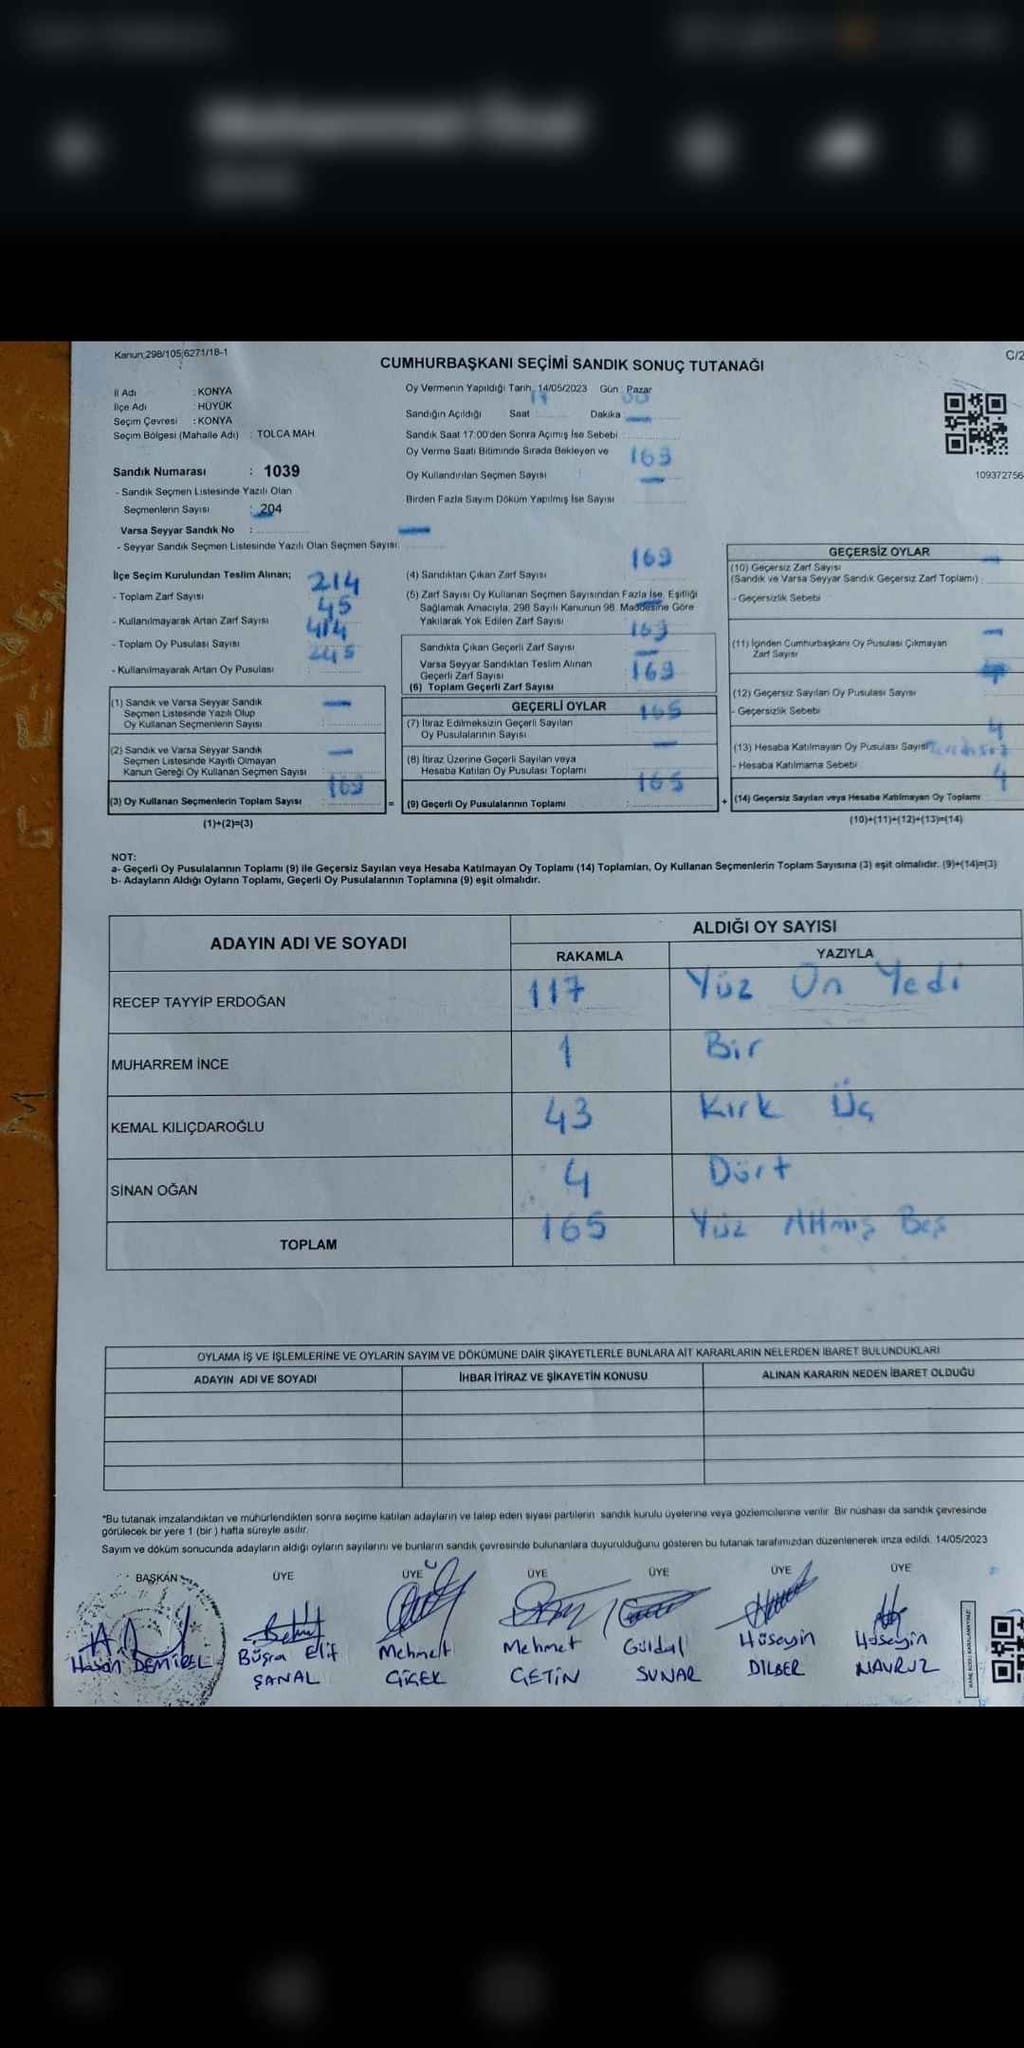 Kanun:298/105,6271/18-1
C/2
CUMHURBAŞKANI SEÇİMİ SANDIK SONUÇ TUTANAĞI
İl Adı : KONYA
İlçe Adı : HÜYÜK
Seçim Çevresi : KONYA
Seçim Bölgesi (Mahalle Adı) : TOLCA MAH
Sandık Numarası : 1039
- Sandık Seçmen Listesinde Yazılı Olan
Seçmenlerin Sayısı : 204
Varsa Seyyar Sandık No :
- Seyyar Sandık Seçmen Listesinde Yazılı Olan Seçmen Sayısı:
Oy Vermenin Yapıldığı Tarih 14/05/2023 Gün : Pazar
Sandığın Açıldığı Saat 17 Dakika 00
Sandık Saat 17:00'den Sonra Açımış İse Sebebi
Oy Verme Saati Bitiminde Sırada Bekleyen ve
Oy Kullandırılan Seçmen Sayısı 169
Birden Fazla Sayım Döküm Yapılmış İse Sayısı
109372756
İlçe Seçim Kurulundan Teslim Alınan;
- Toplam Zarf Sayısı 214
- Kullanılmayarak Artan Zarf Sayısı 45
- Toplam Oy Pusulası Sayısı 414
- Kullanılmayarak Artan Oy Pusulası 245
(1) Sandık ve Varsa Seyyar Sandık
Seçmen Listesinde Yazılı Olup
Oy Kullanan Seçmenlerin Sayısı
(2) Sandık ve Varsa Seyyar Sandık
Seçmen Listesinde Kayıtlı Olmayan
Kanun Gereği Oy Kullanan Seçmen Sayısı
(3) Oy Kullanan Seçmenlerin Toplam Sayısı 169
(1)+(2)=(3)
(4) Sandıktan Çıkan Zarf Sayısı 169
(5) Zarf Sayısı Oy Kullanan Seçmen Sayısından Fazla İse, Eşitliği
Sağlamak Amacıyla, 298 Sayılı Kanunun 98. Maddesine Göre
Yakılarak Yok Edilen Zarf Sayısı
Sandıkta Çıkan Geçerli Zarf Sayısı 169
Varsa Seyyar Sandıktan Teslim Alınan
Geçerli Zarf Sayısı
(6) Toplam Geçerli Zarf Sayısı 169
GEÇERLİ OYLAR
(7) İtiraz Edilmeksizin Geçerli Sayılan
Oy Pusulalarının Sayısı 165
(8) İtiraz Üzerine Geçerli Sayılan veya
Hesaba Katılan Oy Pusulası Toplamı
= (9) Geçerli Oy Pusulalarının Toplamı 165
GEÇERSİZ OYLAR
(10) Geçersiz Zarf Sayısı
(Sandık ve Varsa Seyyar Sandık Geçersiz Zarf Toplamı) :
- Geçersizlik Sebebi
(11) İçinden Cumhurbaşkanı Oy Pusulası Çıkmayan
Zarf Sayısı
(12) Geçersiz Sayılan Oy Pusulası Sayısı
- Geçersizlik Sebebi
(13) Hesaba Katılmayan Oy Pusulası Sayısı 4
- Hesaba Katılmama Sebebi
+ (14) Geçersiz Sayılan veya Hesaba Katılmayan Oy Toplamı 4
(10)+(11)+(12)+(13)=(14)
NOT:
a- Geçerli Oy Pusulalarının Toplamı (9) ile Geçersiz Sayılan veya Hesaba Katılmayan Oy Toplamı (14) Toplamları, Oy Kullanan Seçmenlerin Toplam Sayısına (3) eşit olmalıdır. (9)+(14)=(3)
b- Adayların Aldığı Oyların Toplamı, Geçerli Oy Pusulalarının Toplamına (9) eşit olmalıdır.
ADAYIN ADI VE SOYADI ALDIĞI OY SAYISI
RAKAMLA YAZIYLA
RECEP TAYYİP ERDOĞAN 117 Yüz On Yedi
MUHARREM İNCE 1 Bir
KEMAL KILIÇDAROĞLU 43 Kırk Üç
SİNAN OĞAN 4 Dört
TOPLAM 165 Yüz Altmış Beş
OYLAMA İŞ VE İŞLEMLERİNE VE OYLARIN SAYIM VE DÖKÜMÜNE DAİR ŞİKAYETLERLE BUNLARA AİT KARARLARIN NELERDEN İBARET BULUNDUKLARI
ADAYIN ADI VE SOYADI İHBAR İTİRAZ VE ŞİKAYETİN KONUSU ALINAN KARARIN NEDEN İBARET OLDUĞU
*Bu tutanak imzalandıktan ve mühürlendikten sonra seçime katılan adayların ve talep eden siyasi partilerin sandık kurulu üyelerine veya gözlemcilerine verilir. Bir nüshası da sandık çevresinde
görülecek bir yere 1 (bir) hafta süreyle asılır.
Sayım ve döküm sonucunda adayların aldığı oyların sayılarını ve bunların sandık çevresinde bulunanlara duyurulduğunu gösteren bu tutanak tarafımızdan düzenlenerek imza edildi. 14/05/2023
BAŞKAN ÜYE ÜYE ÜYE ÜYE ÜYE ÜYE
Hasan DEMİREL Büşra Elif Mehmet Mehmet Güldal Hüseyin Hüseyin
ŞANAL ÇİÇEK ÇETİN SUNAR DİLBER NAVRUZ